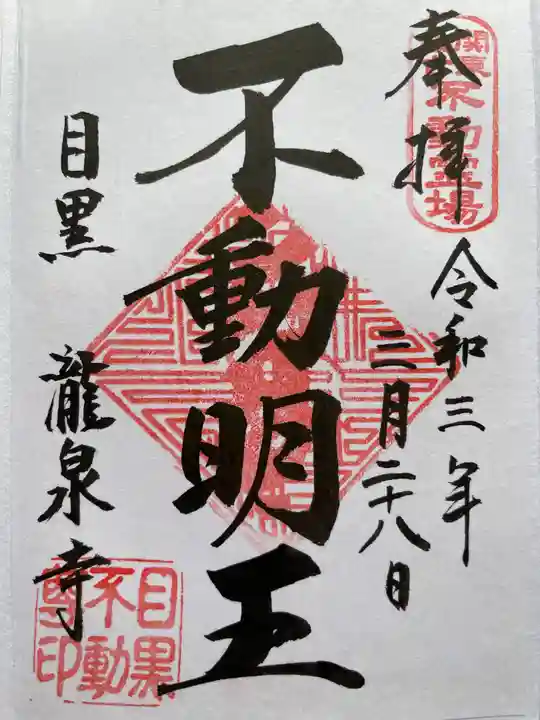 奉拝
関東不動霊場
令和三年
三月二十八日
不動明王
目黒 瀧泉寺
目黒
不動
尊印